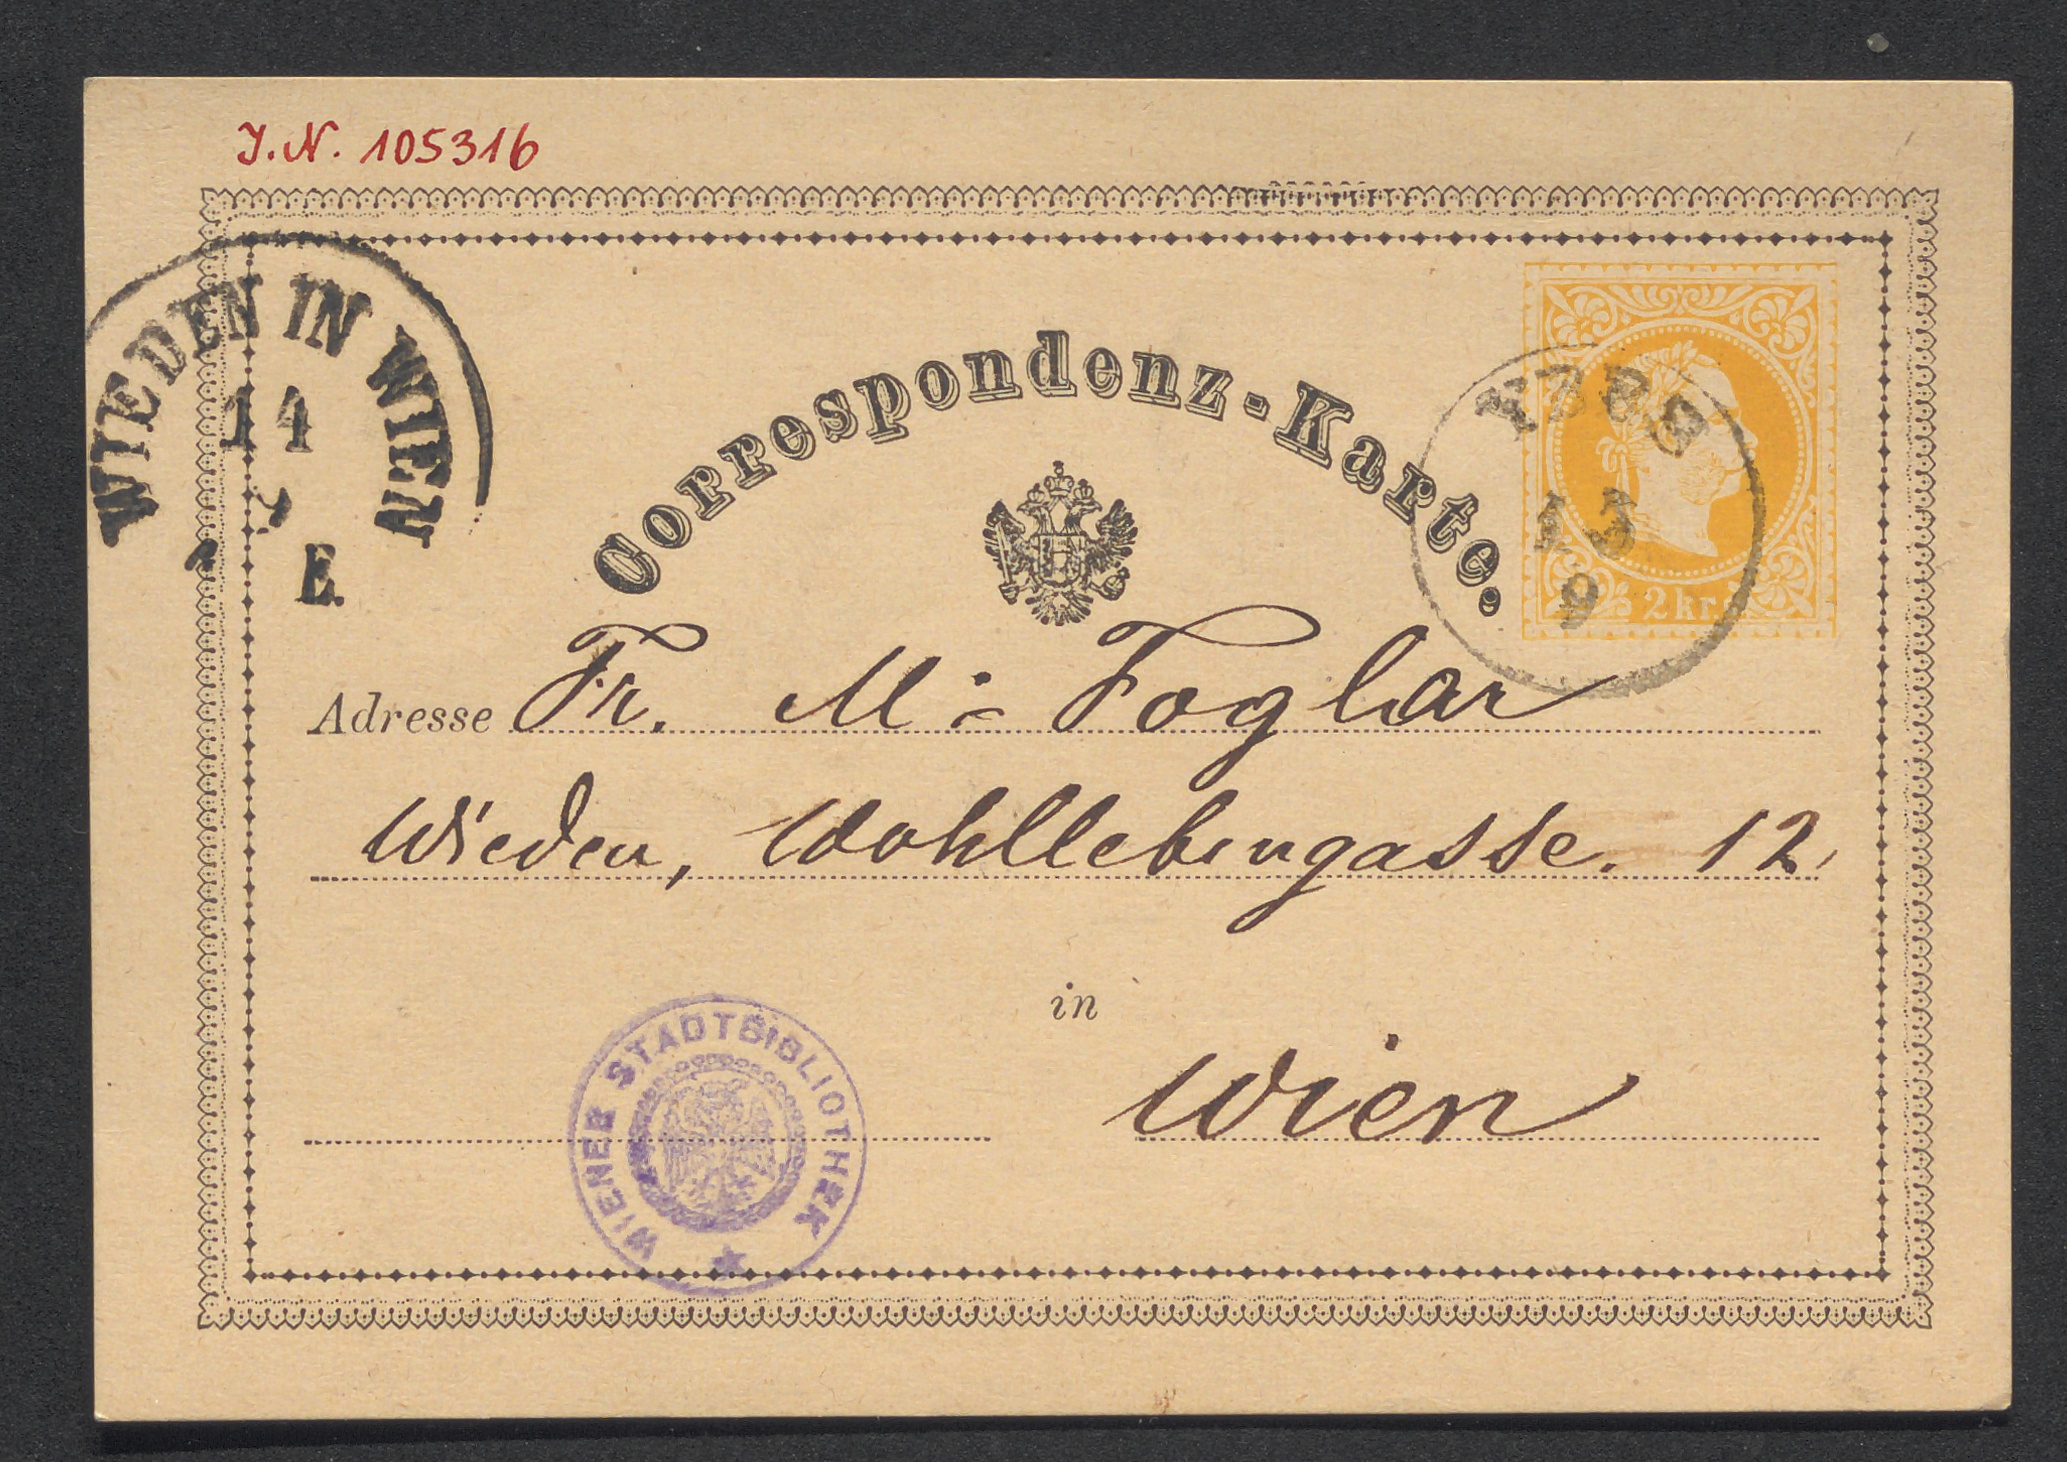 J.N. 105316
WIEDEN IN WIEN
14
E.
Correspondenz-Karte.
13
9
2 kr.
Adresse Fr. M: Foglar
Wieden, Wohllebengasse. 12,
in
Wien
WIENER STADTBIBLIOTHEK